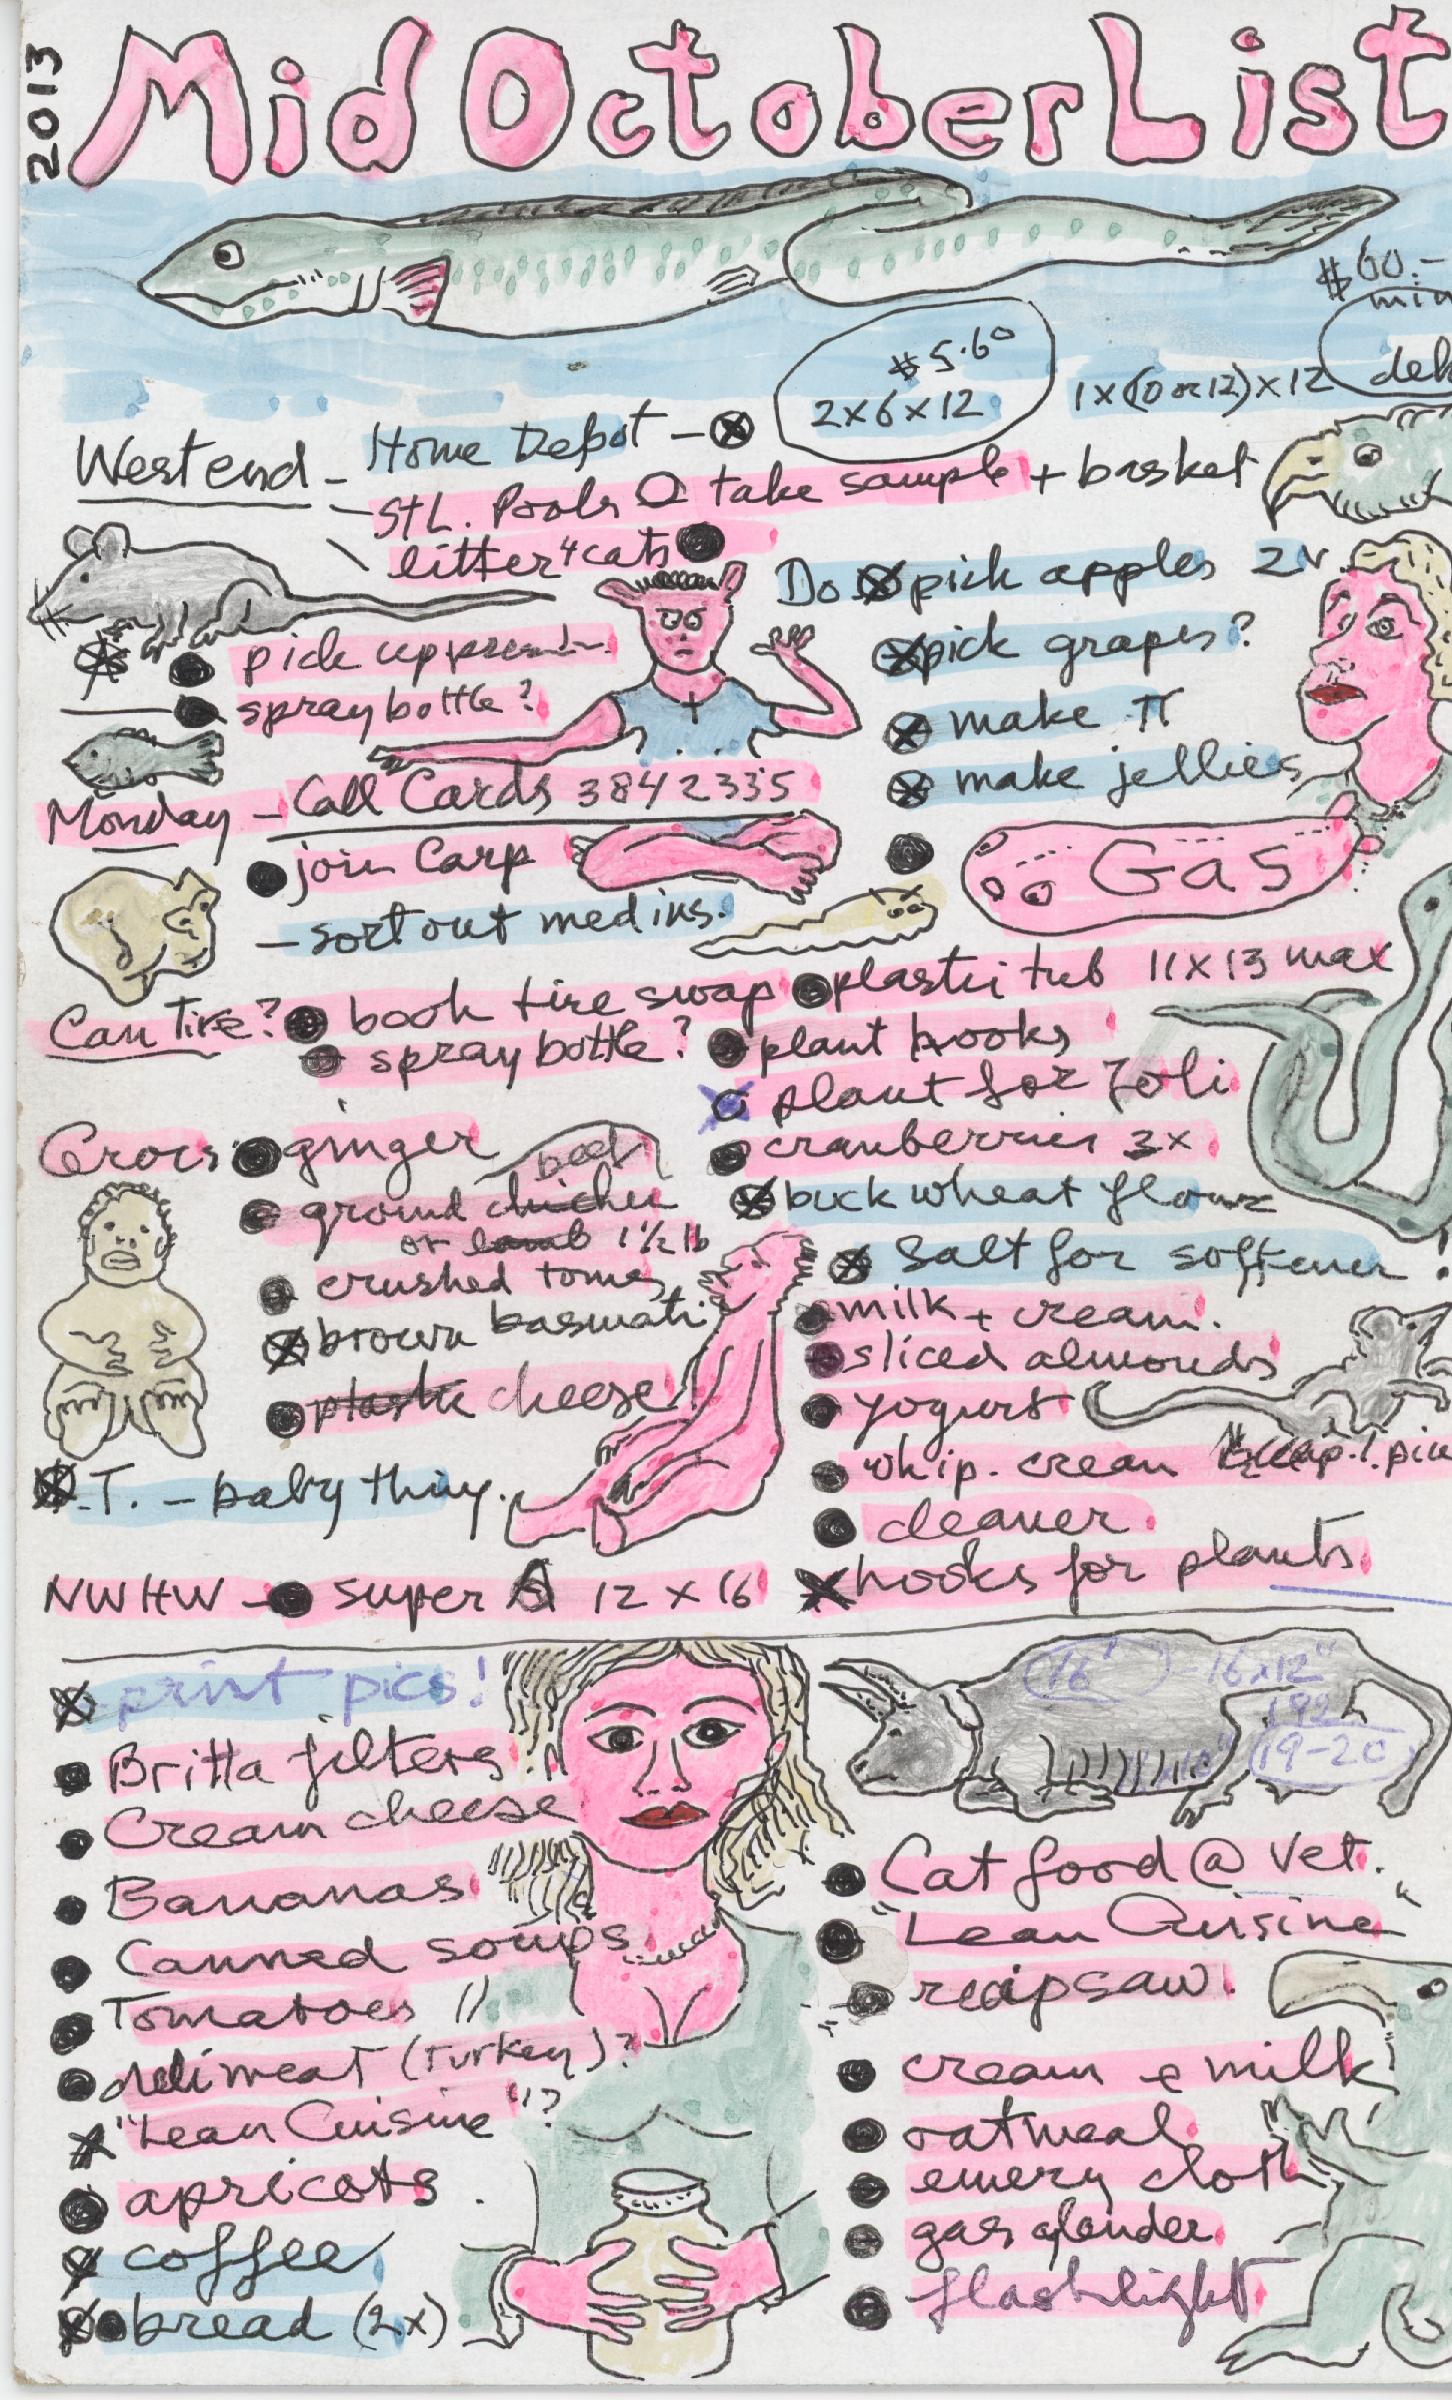 2013
Mid October List
$60.-
min
$5.60
2x6x12
1x(10 or 12)x12
West end - Home Depot -
- StL. Pools take sample + basket
litter 4 cats
Do pick apples
pick grapes?
make π
make jellies
pick up
spray bottle?
Monday - Call Cards 3842335
join Carp
Gas
- sort out medins.
Can Tire? book tire swap
spray bottle?
plastic tub 11x13 max
plant hooks
plant for Zoli
cranberries 3x
buckwheat flour
Salt for softener!
Crocs ginger
beef
ground chicken
or lamb 1½ lb
crushed toms
brown basmati
plastic cheese
milk + cream.
sliced almonds
yogurt
whip. cream
cleaner
hooks for plants
.T. - baby thing.
NWHW - super 12 x 16
print pics!
Britta filters
Cream cheese
Bananas
Canned soups
Tomatoes //
deli meat (Turkey)?
"Lean Cuisine"?
apricots.
coffee
bread (2x)
16' - 16x12"
192
19-20
Cat food @ Vet.
"Lean Cuisine"
recipsaw.
cream & milk
oatmeal
emery cloth
gas
flashlight